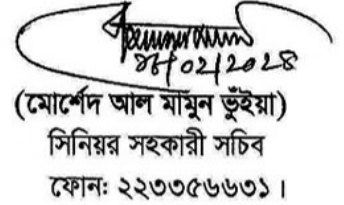 ২৮/02/2028
(মোর্শেদ আল মামুন ভুঁইয়া)
সিনিয়র সহকারী সচিব
ফোনঃ ২২৩৩৫৬৬৩১।